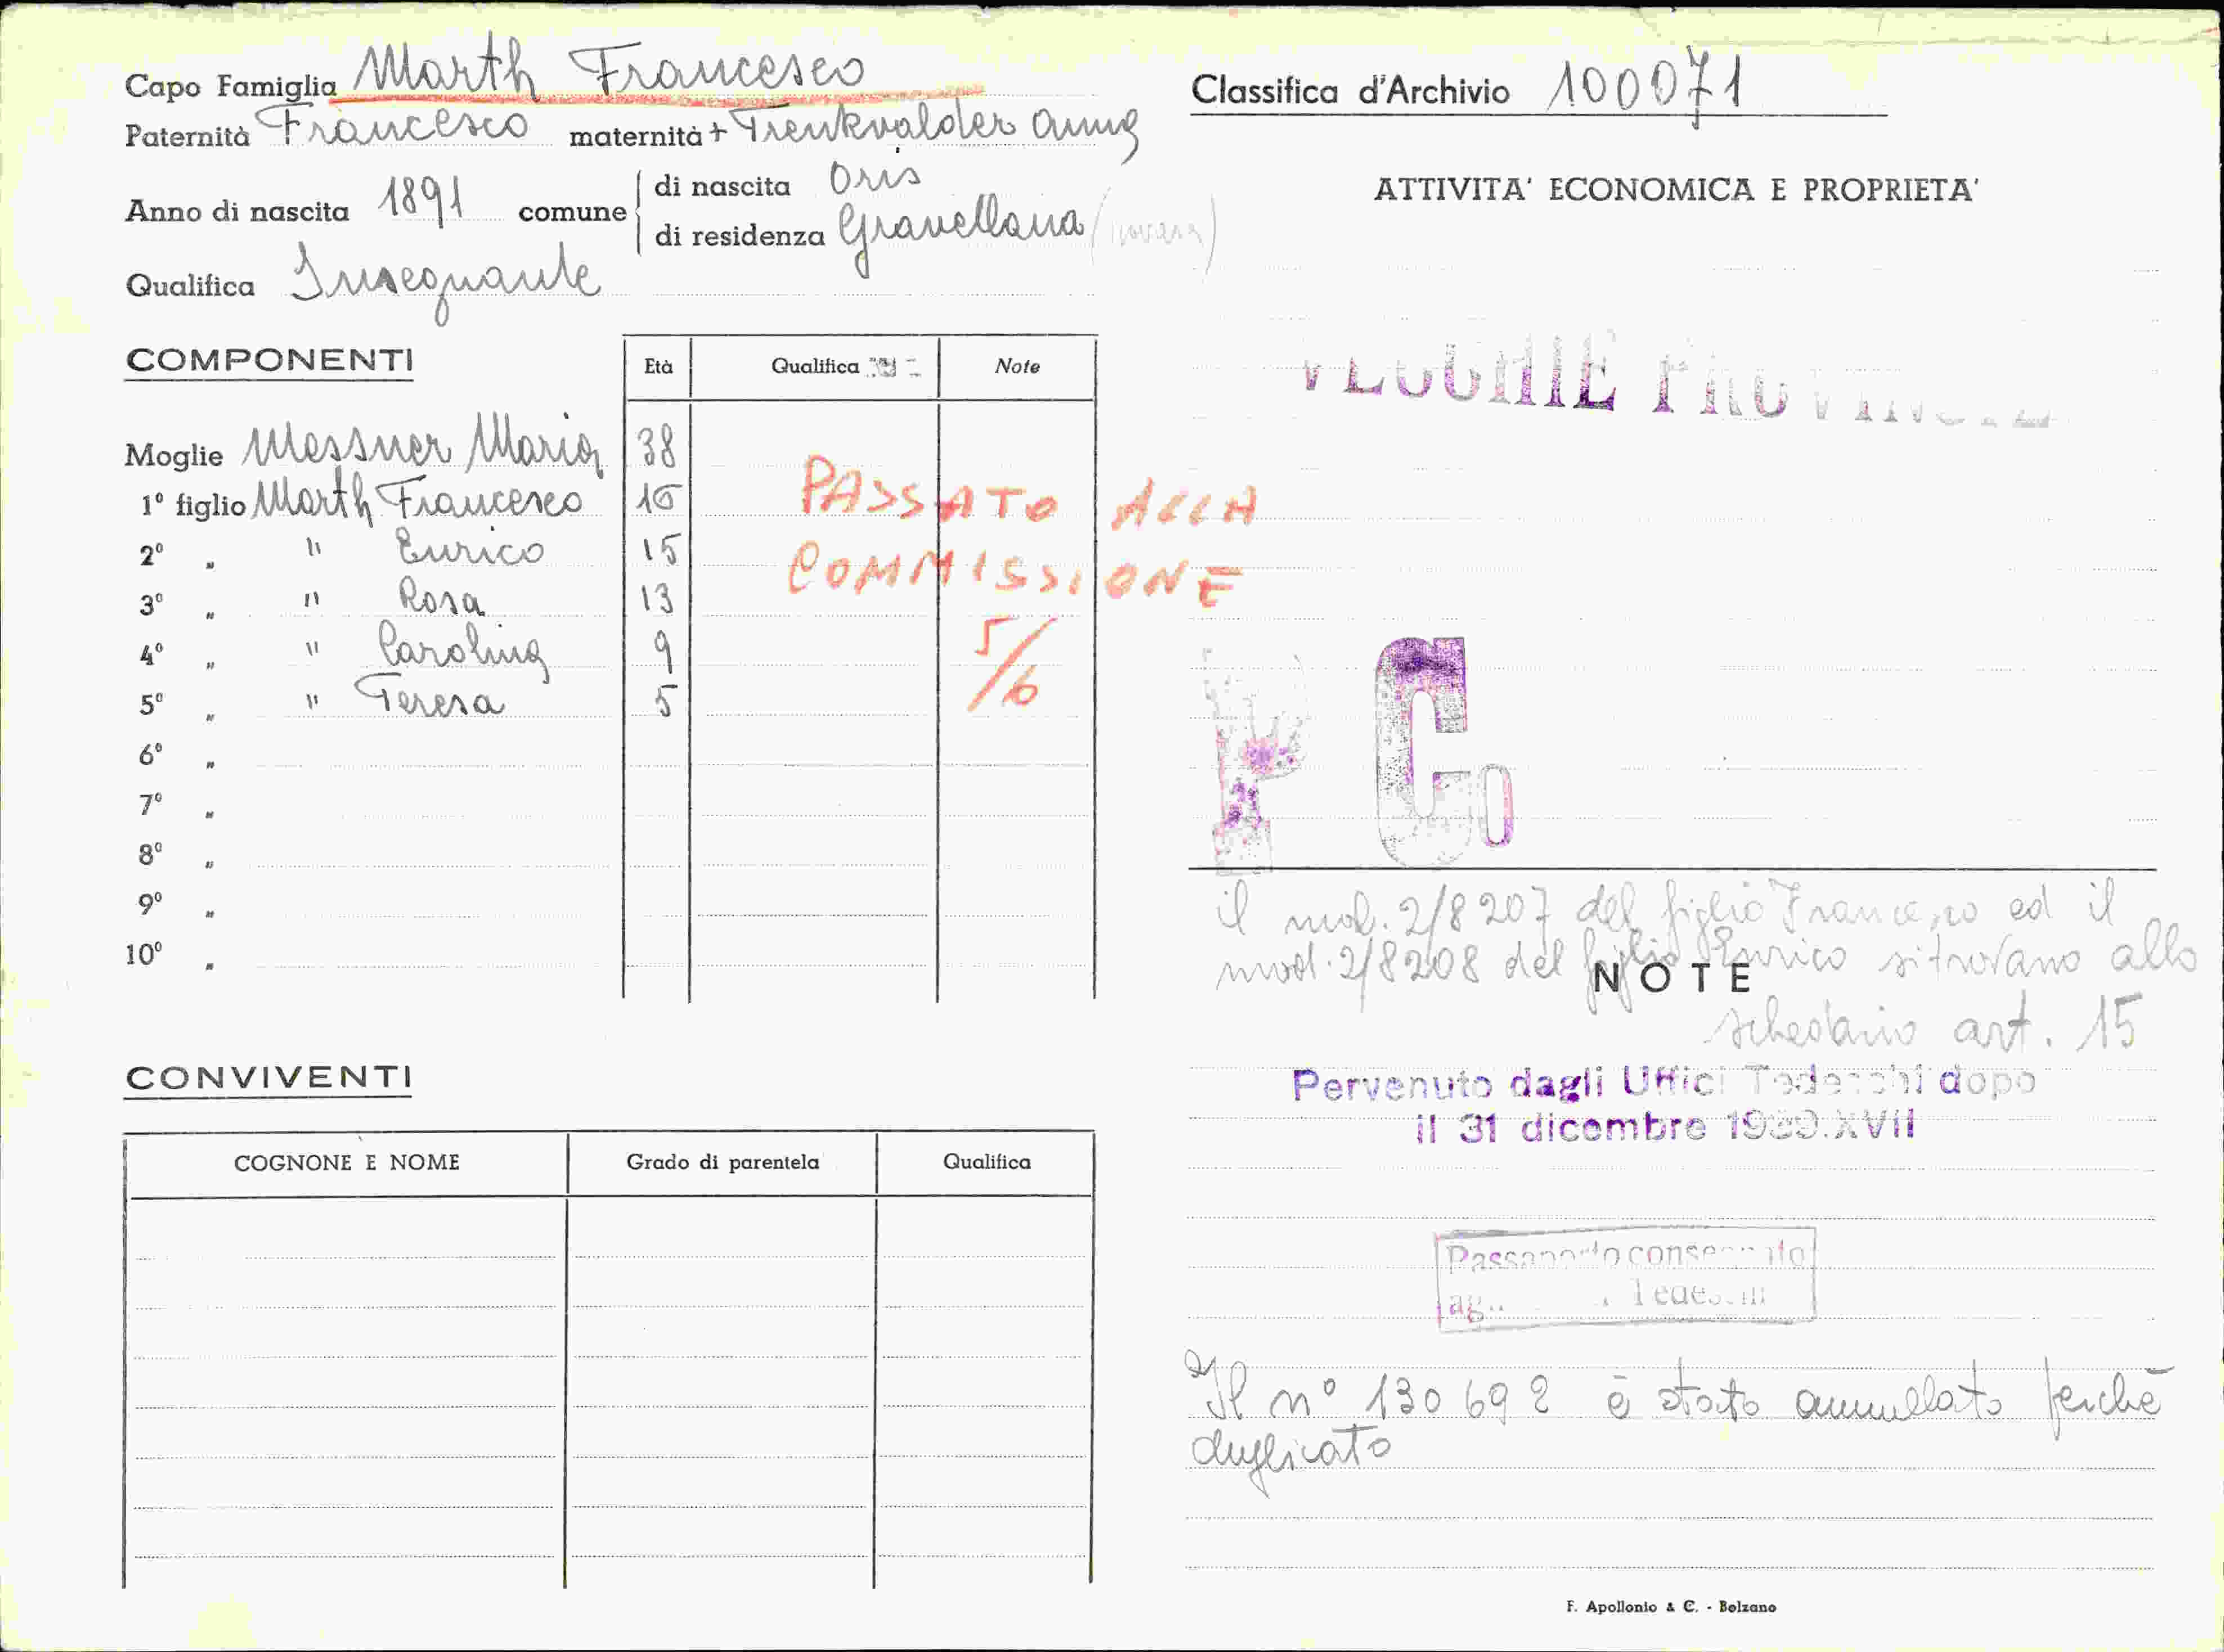 Capo Famiglia Marth Francesco
Paternità Francesco maternità + Trenkvalder Anna
Anno di nascita 1891 comune di nascita Oris
di residenza Gravellona (Novara)
Qualifica Insegnante
COMPONENTI Età Qualifica Note
Moglie Messner Maria 38
1° figlio Marth Francesco 16
2° „ " Enrico 15
3° „ " Rosa 13
4° „ " Carolina 9
5° „ " Teresa 5
6° „
7° „
8° „
9° „
10° „
PASSATO ALLA
COMMISSIONE
5/6
CONVIVENTI
COGNONE E NOME Grado di parentela Qualifica
Classifica d'Archivio 100071
ATTIVITA' ECONOMICA E PROPRIETA'
VECCHIE PROVINCIE
C
il mod. 2/8207 del figlio Francesco ed il
mod. 2/8208 del figlio Enrico si trovano allo
NOTE
schedario art. 15
Pervenuto dagli Uffici Tedeschi dopo
il 31 dicembre 1939.XVII
Passaporto consegnato
Tedeschi
Il n° 130692 è stato annullato perchè
duplicato
F. Apollonio & C. - Bolzano